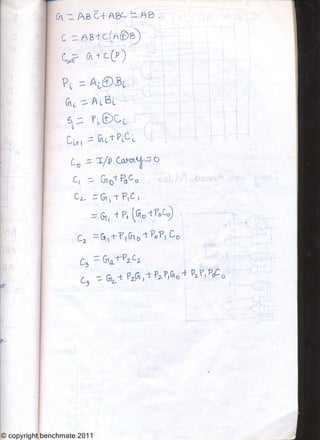 G = ABC̅ + ABC = AB.
C = AB + C(A⊕B)
Cout = G + C(P)
Pi = Ai ⊕ Bi
Gi = AiBi
Si = Pi ⊕ Ci
Ci+1 = Gi + PiCi
C0 = I/P Carry = 0
C1 = G0 + P0C0
C2 = G1 + P1C1
= G1 + P1 (G0 + P0C0)
C2 = G1 + P1G0 + P0P1C0
C3 = G2 + P2C2
C3 = G2 + P2G1 + P2P1G0 + P2P1P0C0
© copyright benchmate 2011